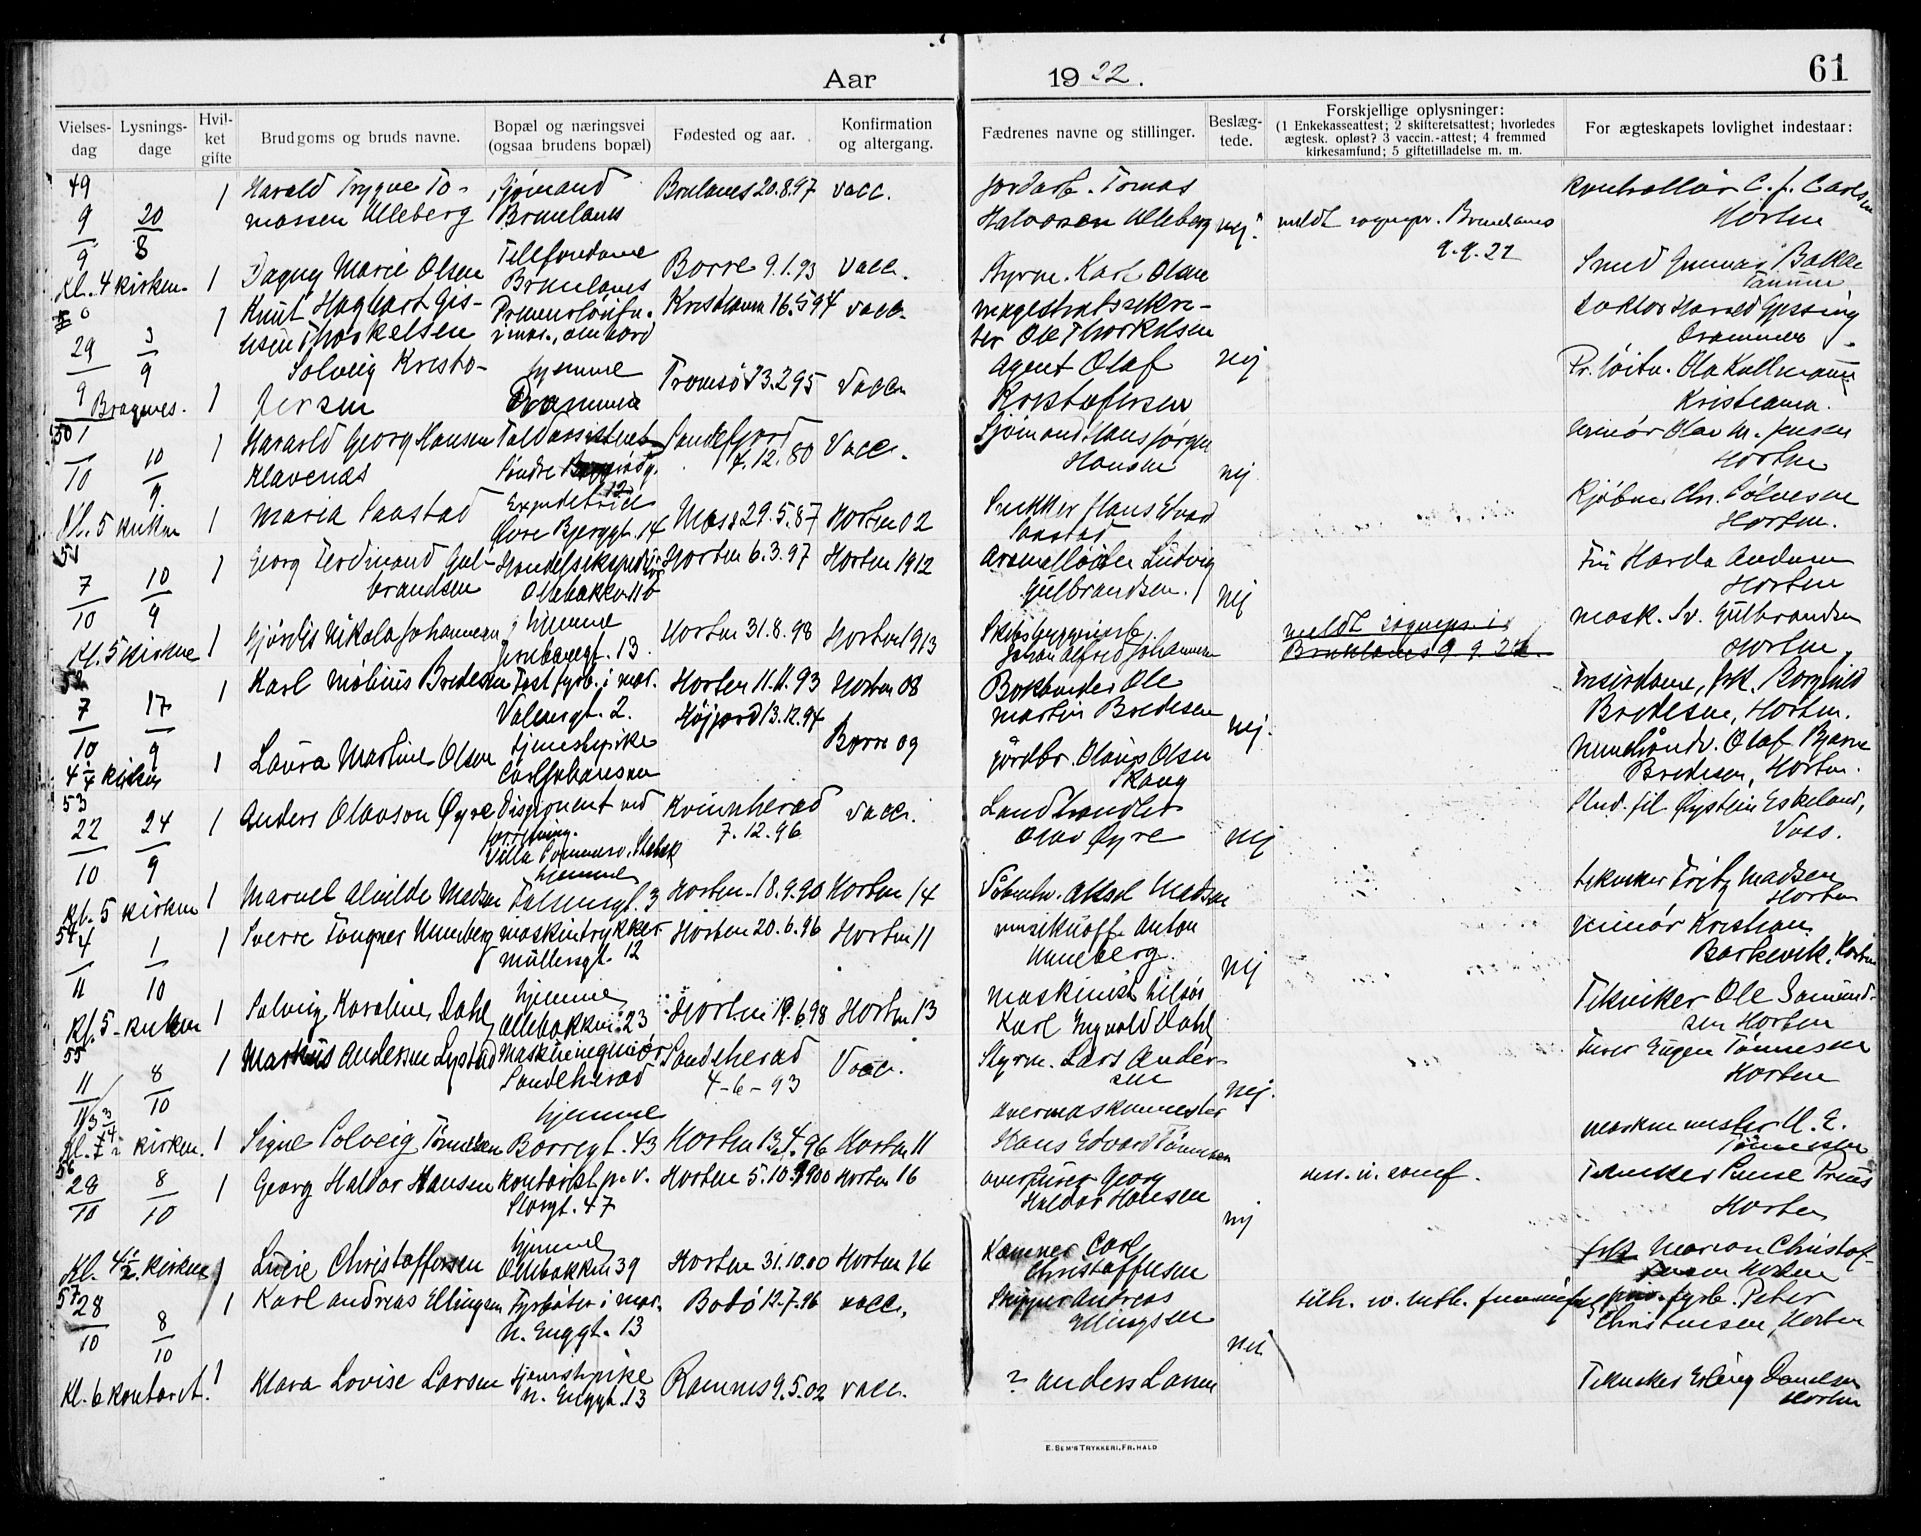 Aar 1922.
61
Vielses-dag
Lysnings-dage
Hvil-ket gifte
Brudgoms og bruds navne.
Bopæl og næringsvei (ogsaa brudens bopæl)
Fødested og aar.
Konfirmation og altergang.
Fædrenes navne og stillinger.
Beslæg-tede.
Forskjellige oplysninger:
(1 Enkekasseattest; 2 skifteretsattest; hvorledes
ægtesk. opløst? 3 vaccin.-attest; 4 fremmed
kirkesamfund; 5 giftetilladelse m. m.
For ægteskapets lovlighet indestaar:
49
9/9 20/8 1 Harald Trygve To-
massen Ulleberg
Sjømand
Brunlanes
Brunlanes 20.8.97 vacc.
Tomas
Halvorsen Ulleberg nej.
meldt sognepr. Brunlanes
9.9.22
kontrollør C. J. Carlsen
Horten
Kl. 4 kirken. 1 Dagny Marie Olsen
Brunlanes
Borre 9.1.93 vacc.
Styrm. Karl Olsen
Smed Gunnar Bakke
1 Knut Haghart Gis-
Thorkelsen
Kristiania 16.5.94 vacc.
29/9 3/9
Ole Thorkelsen
nej
doktor Harald Gjessing
Drammen
Bragenes. 1 Solveig Kristo-
fersen
hjemme
Drammen
Tromsø 23.2.95 Vacc.
Agent Olaf
Kristofersen
Pr. løitn. Ola Kullmann
Kristiania.
50
1/10 10/9 1 Harald Georg Hansen
Klavenæs
Toldassistent
Søndre 12
Sandefjord
7.12.80 Vacc.
Sjømand Hans Jørgen
Hansen nej
Horten
Kl. 5 kirken 1 Maria Saastad
Øvre Bjerggt. 14
Moss 29.5.87 Horten 02
Snekker Hans Edvard
Saastad
Kjøbm. Chr. Sølvesen
Horten.
51
7/10 10/9 1 Georg Ferdinand Gul-
brandsen
Ollebakken 11b
Horten 6.3.97 Horten 1912
Ludvig
Gulbrandsen. nej
Horten
Kl. 5 kirken 1 Hjørdis Nikola Johannesen
hjemme
Jernbanegt. 13.
Horten 31.8.98 Horten 1913
Johan Alfred Johannesen
meldt sognepr. i
Brunlanes 9.9.22.
mask. Sv. Gulbrandsen
Horten.
52
7/10 17/9 1 Karl Møbius Bredesen
Fast fyrb. i mar.
Valensgt. 2.
Horten 11.11.93 Horten 08
Bokbinder Ole
Martin Bredesen nej.
Bredesen, Horten.
4 1/4 kirken 1 Laura Martine Olsen
Tjenestepike
Carl Johansen
Højjord 13.12.94
Borre 09
Jordbr. Olaus Olsen
Skaug
Olaf Bjarne
Bredesen, Horten.
53
22/10 24/9 1 Anders Olavson Øyre
Disponent ved
forretning.
Kvinnherad
7.12.96 vacc.
Landhandler
Olav Øyre nej
Stud. fil. Øystein Eskeland,
Voss.
Kl. 5 kirken 1 Marvel Alvilde Madsen
hjemme
Falsensgt. 3
Horten 18.9.90 Horten 14
Aksel Madsen
tekniker Fritz Madsen
Horten
54
4/11 1/10 1 Sverre Tangner Unneberg
maskintrykker
Müllersgt. 12
Horten 20.6.96 Horten 11
musikuoff. Anton
Unneberg. nej
Kristian
Barkevik, Horten
Kl. 5 - kirken 1 Solveig Karoline Dahl
hjemme
Ollebakken 23
Horten 19.6.98 Horten 13
maskinist
Karl Ingvald Dahl
Tekniker Ole Samund-
sen Horten
55
11/11 8/10 1 Markus Andersen Lystad
Maskiningeniør
Sandeherad
Sandeherad
4-6-93 Vacc.
Styrm. Lars Ander-
sen nej.
Furer Eugen Tønnesen
Horten
Kl. 7 1/2 kirken. 1 Signe Solveig Tønnesen
hjemme
Borregt. 43
Horten 13.4.96 Horten 11
overmaskinmester
Hans Edvard Tønnesen
maskinmester H. E.
Tønnessen
56
28/10 8/10 1 Georg Haldor Hansen
kontorist p. v.
Storgt. 47
Horten 5.10.1900 Horten 16
overfurer Georg
Haldor Hansen nej
Tekniker
Horten
Kl. 4 1/2. kirken 1 Lucie Christoffersen
hjemme
Ollebakken 39
Horten 31.10.00 Horten 16
Carl
Christoffersen
frk. Marion Christof-
fersen Horten
57
28/10 8/10 1 Karl Andreas Ellingsen
Fyrbøter i mar.
N. Enggt. 13
Bodø 12.7.96 vacc.
Skipper Andreas
Ellingsen nei
Peter
Christensen, Horten
Kl. 6 kontoret. 1 Klara Lovise Larsen
Tjenestepike
N. Enggt. 13
Ramnes 9.5.02 vacc.
? Anders Larsen
Tekniker Erling Danielsen
Horten
E. SEM'S TRYKKERI, FR.HALD